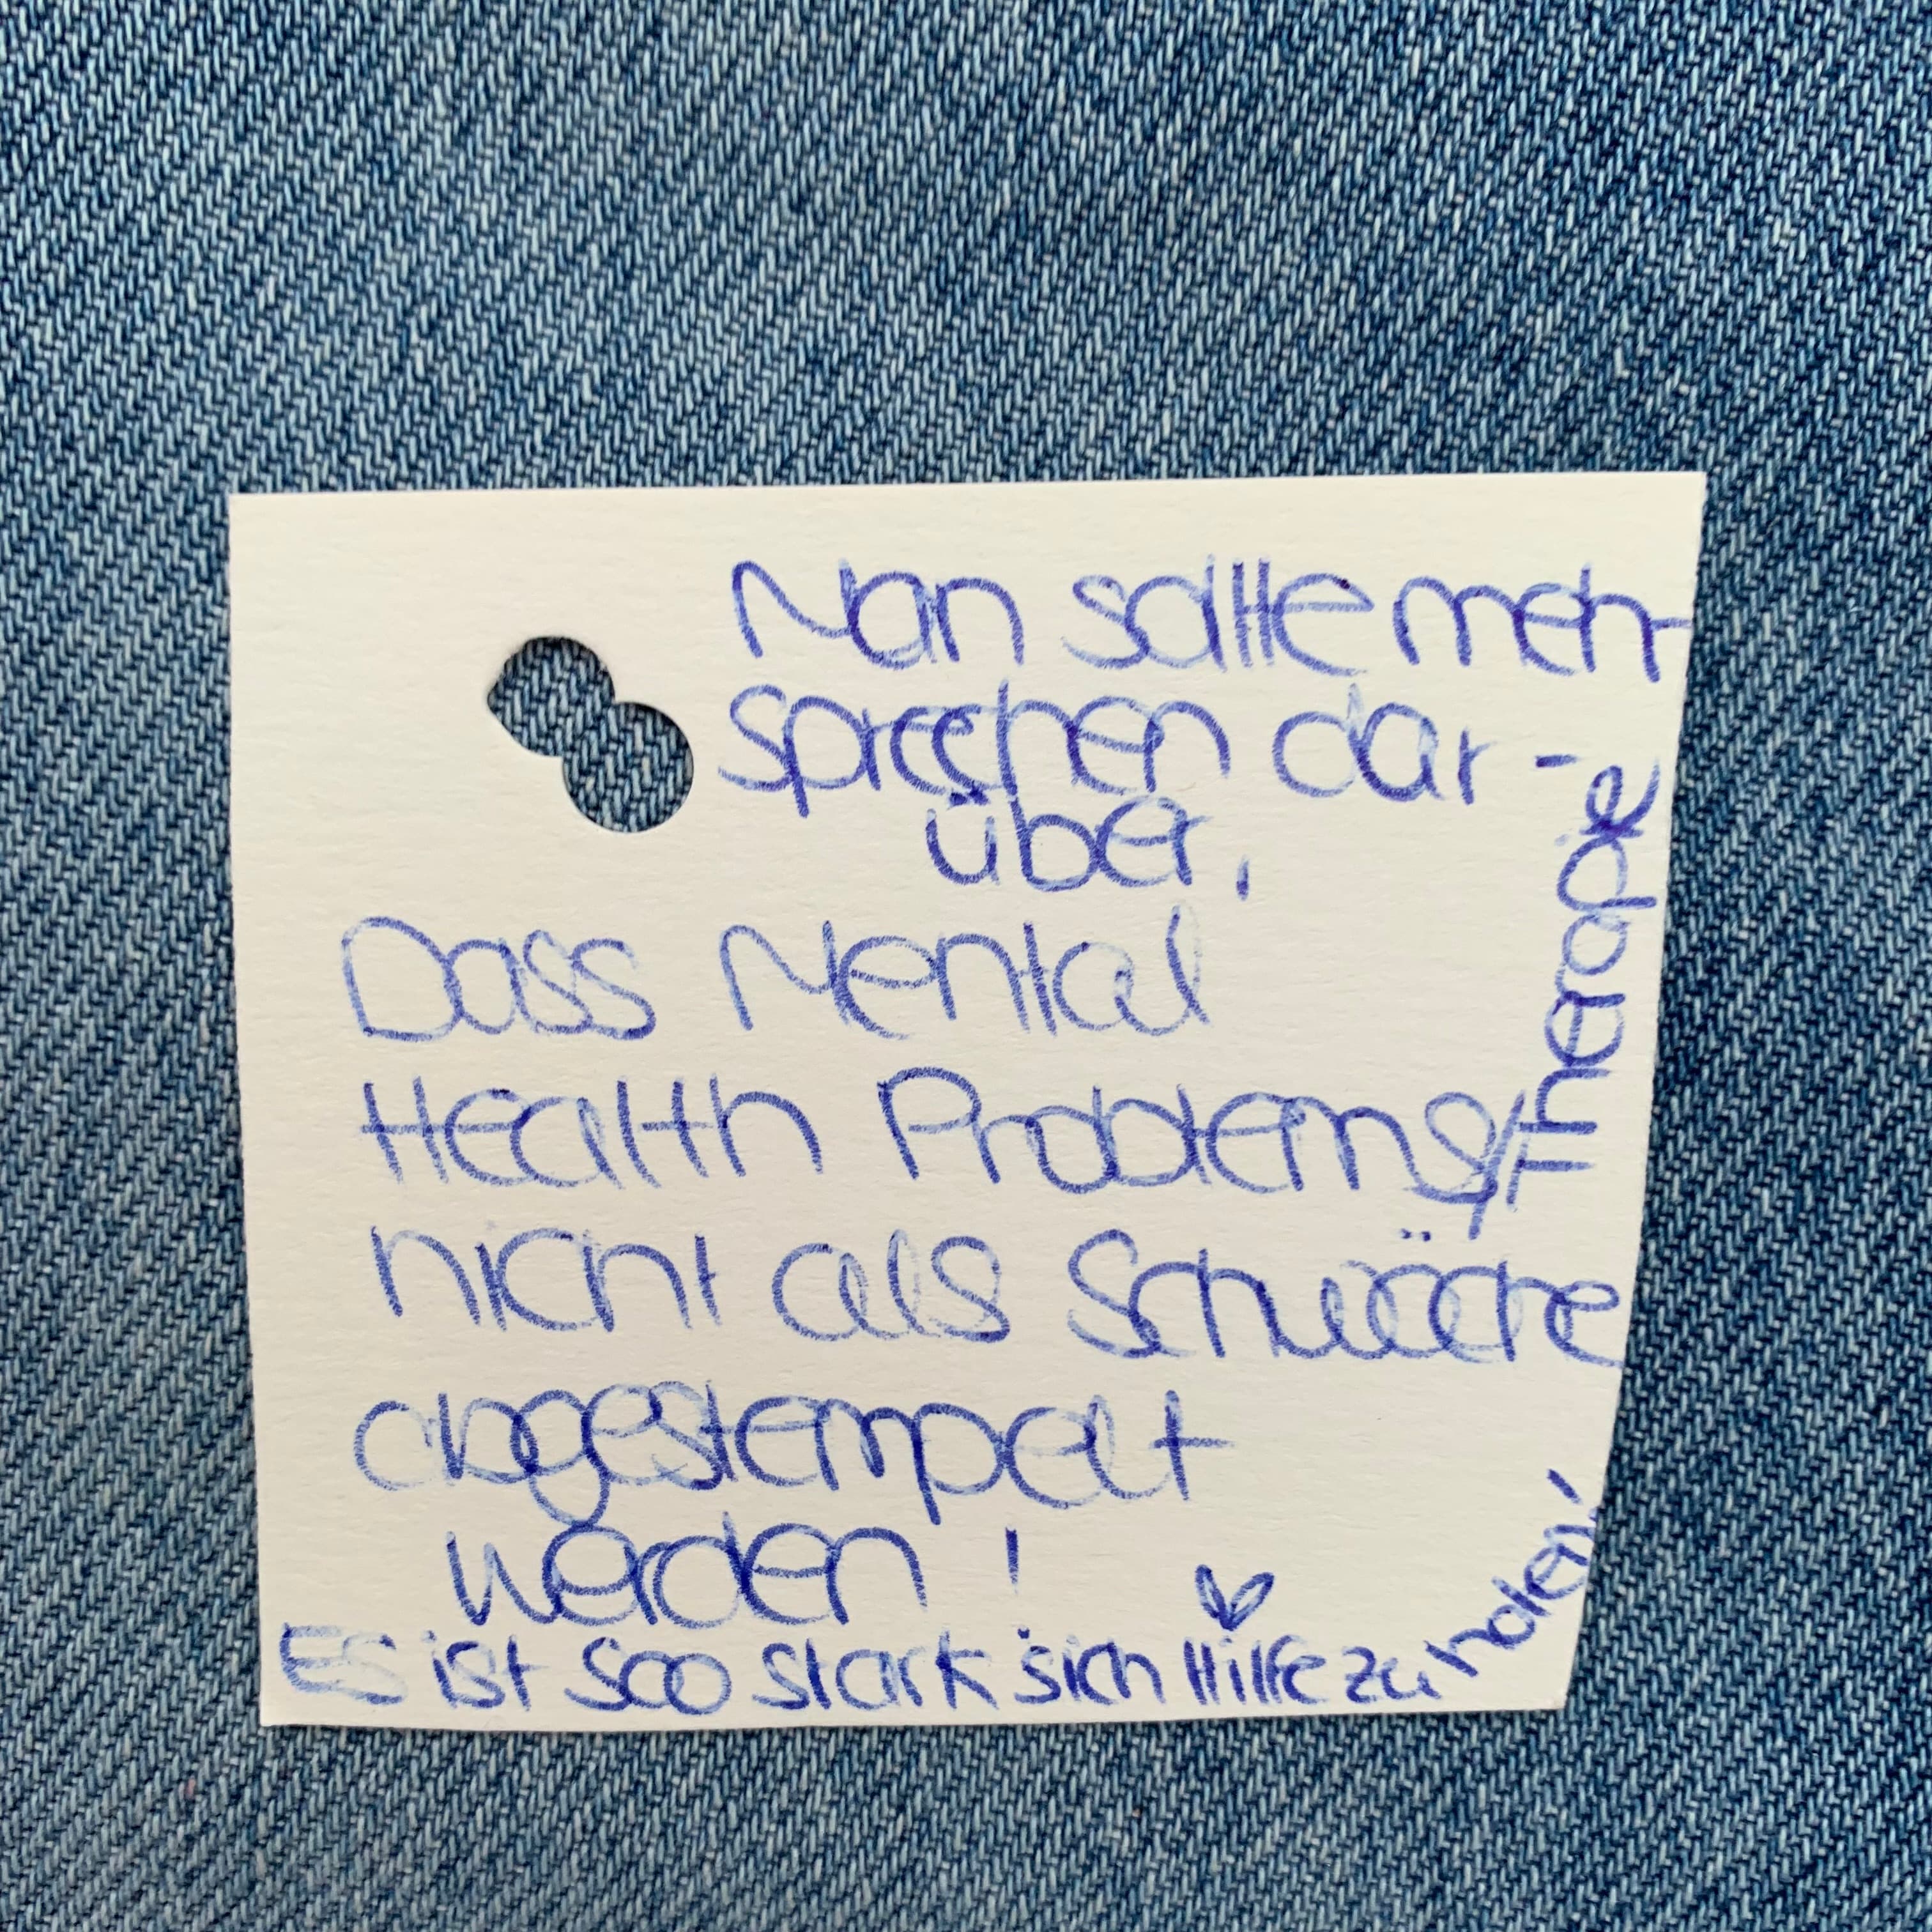 Man sollte mehr
sprechen dar-
über,
Dass Mental
Health Problems/Therapie
nicht als Schwäche
abgestempelt
werden !
Es ist soo stark sich Hilfe zu holen!